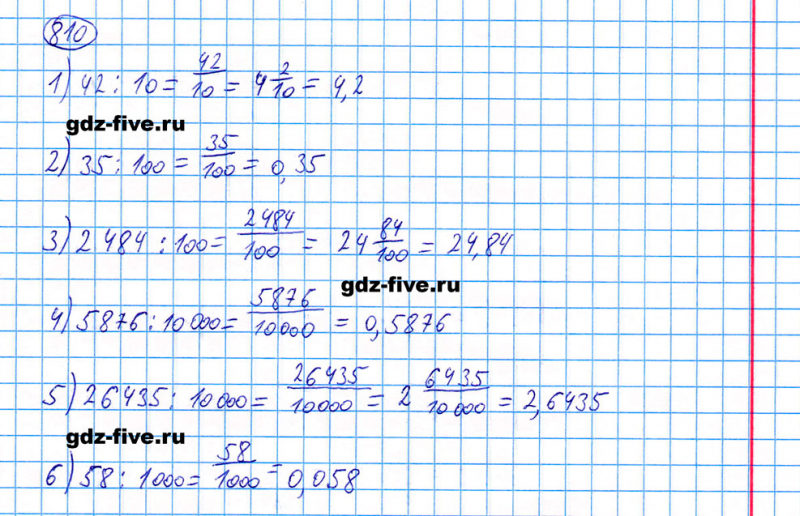 810
1) 42 : 10 = 42/10 = 4 2/10 = 4,2
gdz-five.ru
2) 35 : 100 = 35/100 = 0,35
3) 2 484 : 100 = 2 484/100 = 24 84/100 = 24,84
gdz-five.ru
4) 5876 : 10 000 = 5876/10000 = 0,5876
5) 26435 : 10 000 = 26435/10000 = 2 6435/10 000 = 2,6435
gdz-five.ru
6) 58 : 1000 = 58/1000 = 0,058